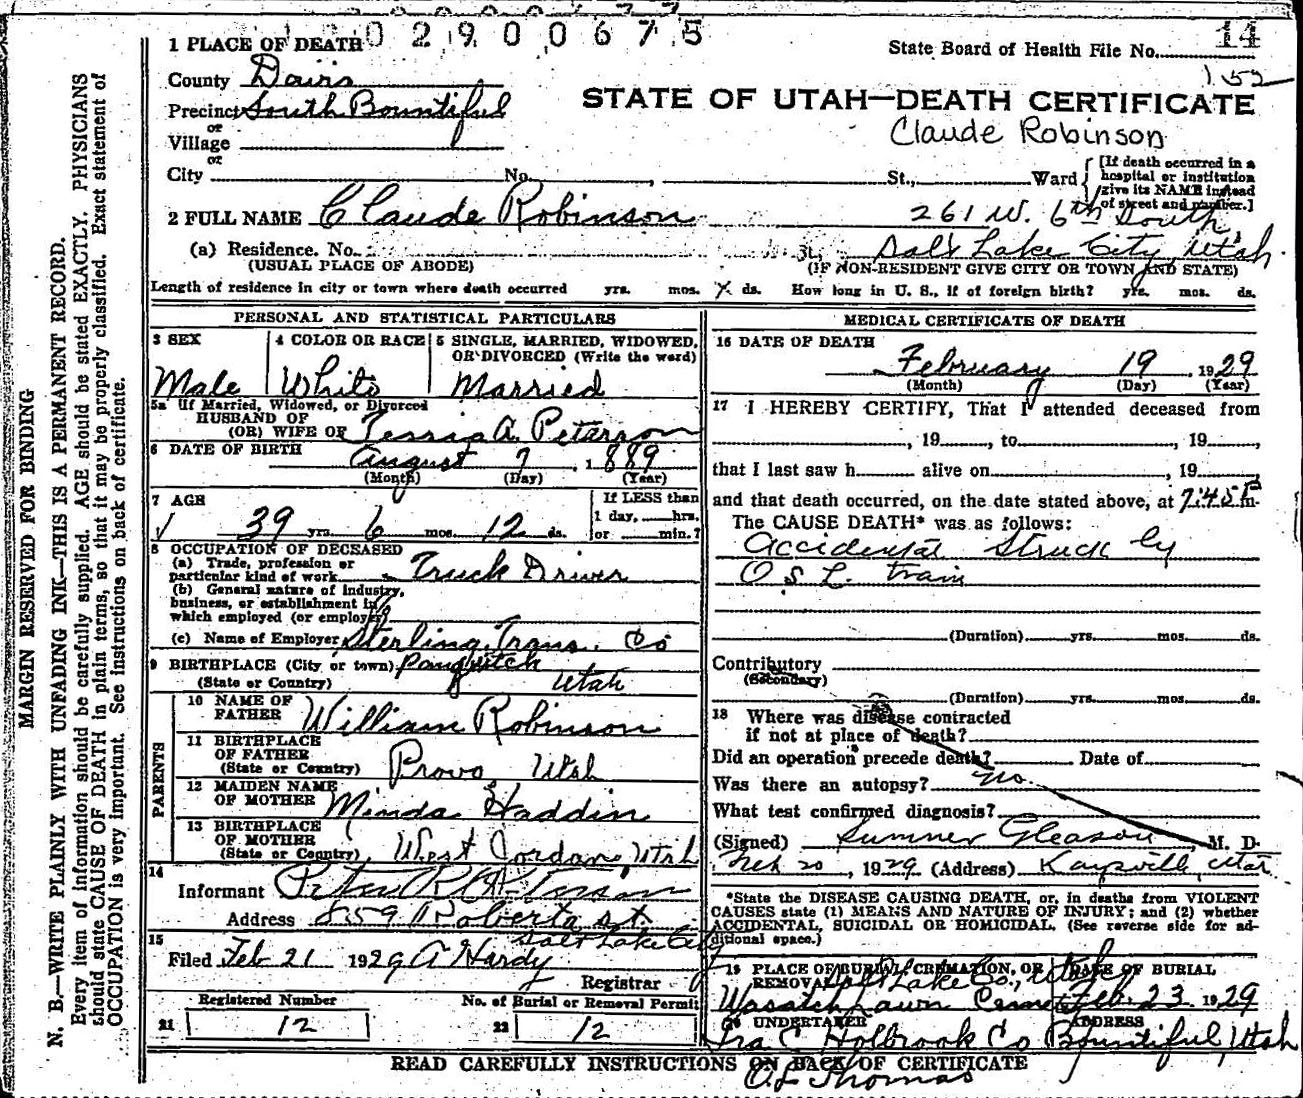 0290067 5
1 PLACE OF DEATH
State Board of Health File No. 14
County Davis
152
Precinct South Bountiful
STATE OF UTAH—DEATH CERTIFICATE
or
Village
Claude Robinson
or
City No. , St., Ward
[If death occurred in a hospital or institution give its NAME instead of street and number.]
2 FULL NAME Claude Robinson
261 W. 6th South,
(a) Residence. No. St., Salt Lake City, Utah.
(USUAL PLACE OF ABODE) (IF NON-RESIDENT GIVE CITY OR TOWN AND STATE)
Length of residence in city or town where death occurred yrs. mos. ds. How long in U. S., if of foreign birth? yrs. mos. ds.
PERSONAL AND STATISTICAL PARTICULARS
3 SEX
Male
4 COLOR OR RACE
White
5 SINGLE, MARRIED, WIDOWED, OR DIVORCED (Write the word)
Married
5a If Married, Widowed, or Divorced
HUSBAND OF
(OR) WIFE OF Tessia A. Peterson
6 DATE OF BIRTH August 7, 1889
(Month) (Day) (Year)
7 AGE
39 yrs. 6 mos. 12 ds.
If LESS than
1 day, hrs.
or min.?
8 OCCUPATION OF DECEASED
(a) Trade, profession or
particular kind of work Truck Driver
(b) General nature of industry,
business, or establishment in
which employed (or employer)
(c) Name of Employer Sterling Trans. Co
9 BIRTHPLACE (City or town) Panguitch
(State or Country) Utah
PARENTS
10 NAME OF
FATHER William Robinson
11 BIRTHPLACE
OF FATHER
(State or Country) Provo Utah
12 MAIDEN NAME
OF MOTHER Minda Haddin
13 BIRTHPLACE
OF MOTHER
(State or Country) West Jordan, Utah
14
Informant
Address 859 Roberta St.
Salt Lake City
15
Filed Feb 21 1929 A Hardy
Registrar
Registered Number
21 12
No. of Burial or Removal Permit
22 12
MEDICAL CERTIFICATE OF DEATH
16 DATE OF DEATH
February 19, 1929
(Month) (Day) (Year)
17 I HEREBY CERTIFY, That I attended deceased from
, 19 , to , 19 ,
that I last saw h alive on , 19
and that death occurred, on the date stated above, at 7:45 P m.
The CAUSE DEATH* was as follows:
Accidental Struck by
O S L. train
(Duration) yrs. mos. ds.
Contributory
(Secondary)
(Duration) yrs. mos. ds.
18 Where was disease contracted
if not at place of death?
Did an operation precede death? Date of
Was there an autopsy? no.
What test confirmed diagnosis?
(Signed) Sumner Gleason, M. D.
Feb 20, 1929 (Address) Kaysville, Utah.
*State the DISEASE CAUSING DEATH, or, in deaths from VIOLENT
CAUSES state (1) MEANS AND NATURE OF INJURY; and (2) whether
ACCIDENTAL, SUICIDAL OR HOMICIDAL. (See reverse side for ad-
ditional space.)
19 PLACE OF BURIAL, CREMATION, OR
REMOVAL Salt Lake Co., Utah
Wasatch Lawn Cemetery
DATE OF BURIAL
Feb. 23 1929
20 UNDERTAKER
Ira C Holbrook Co
ADDRESS
Bountiful, Utah
READ CAREFULLY INSTRUCTIONS ON BACK OF CERTIFICATE
O. L. Thomas
MARGIN RESERVED FOR BINDING
N. B.—WRITE PLAINLY WITH UNFADING INK—THIS IS A PERMANENT RECORD.
Every item of information should be carefully supplied. AGE should be stated EXACTLY. PHYSICIANS
should state CAUSE OF DEATH in plain terms, so that it may be properly classified. Exact statement of
OCCUPATION is very important. See instructions on back of certificate.